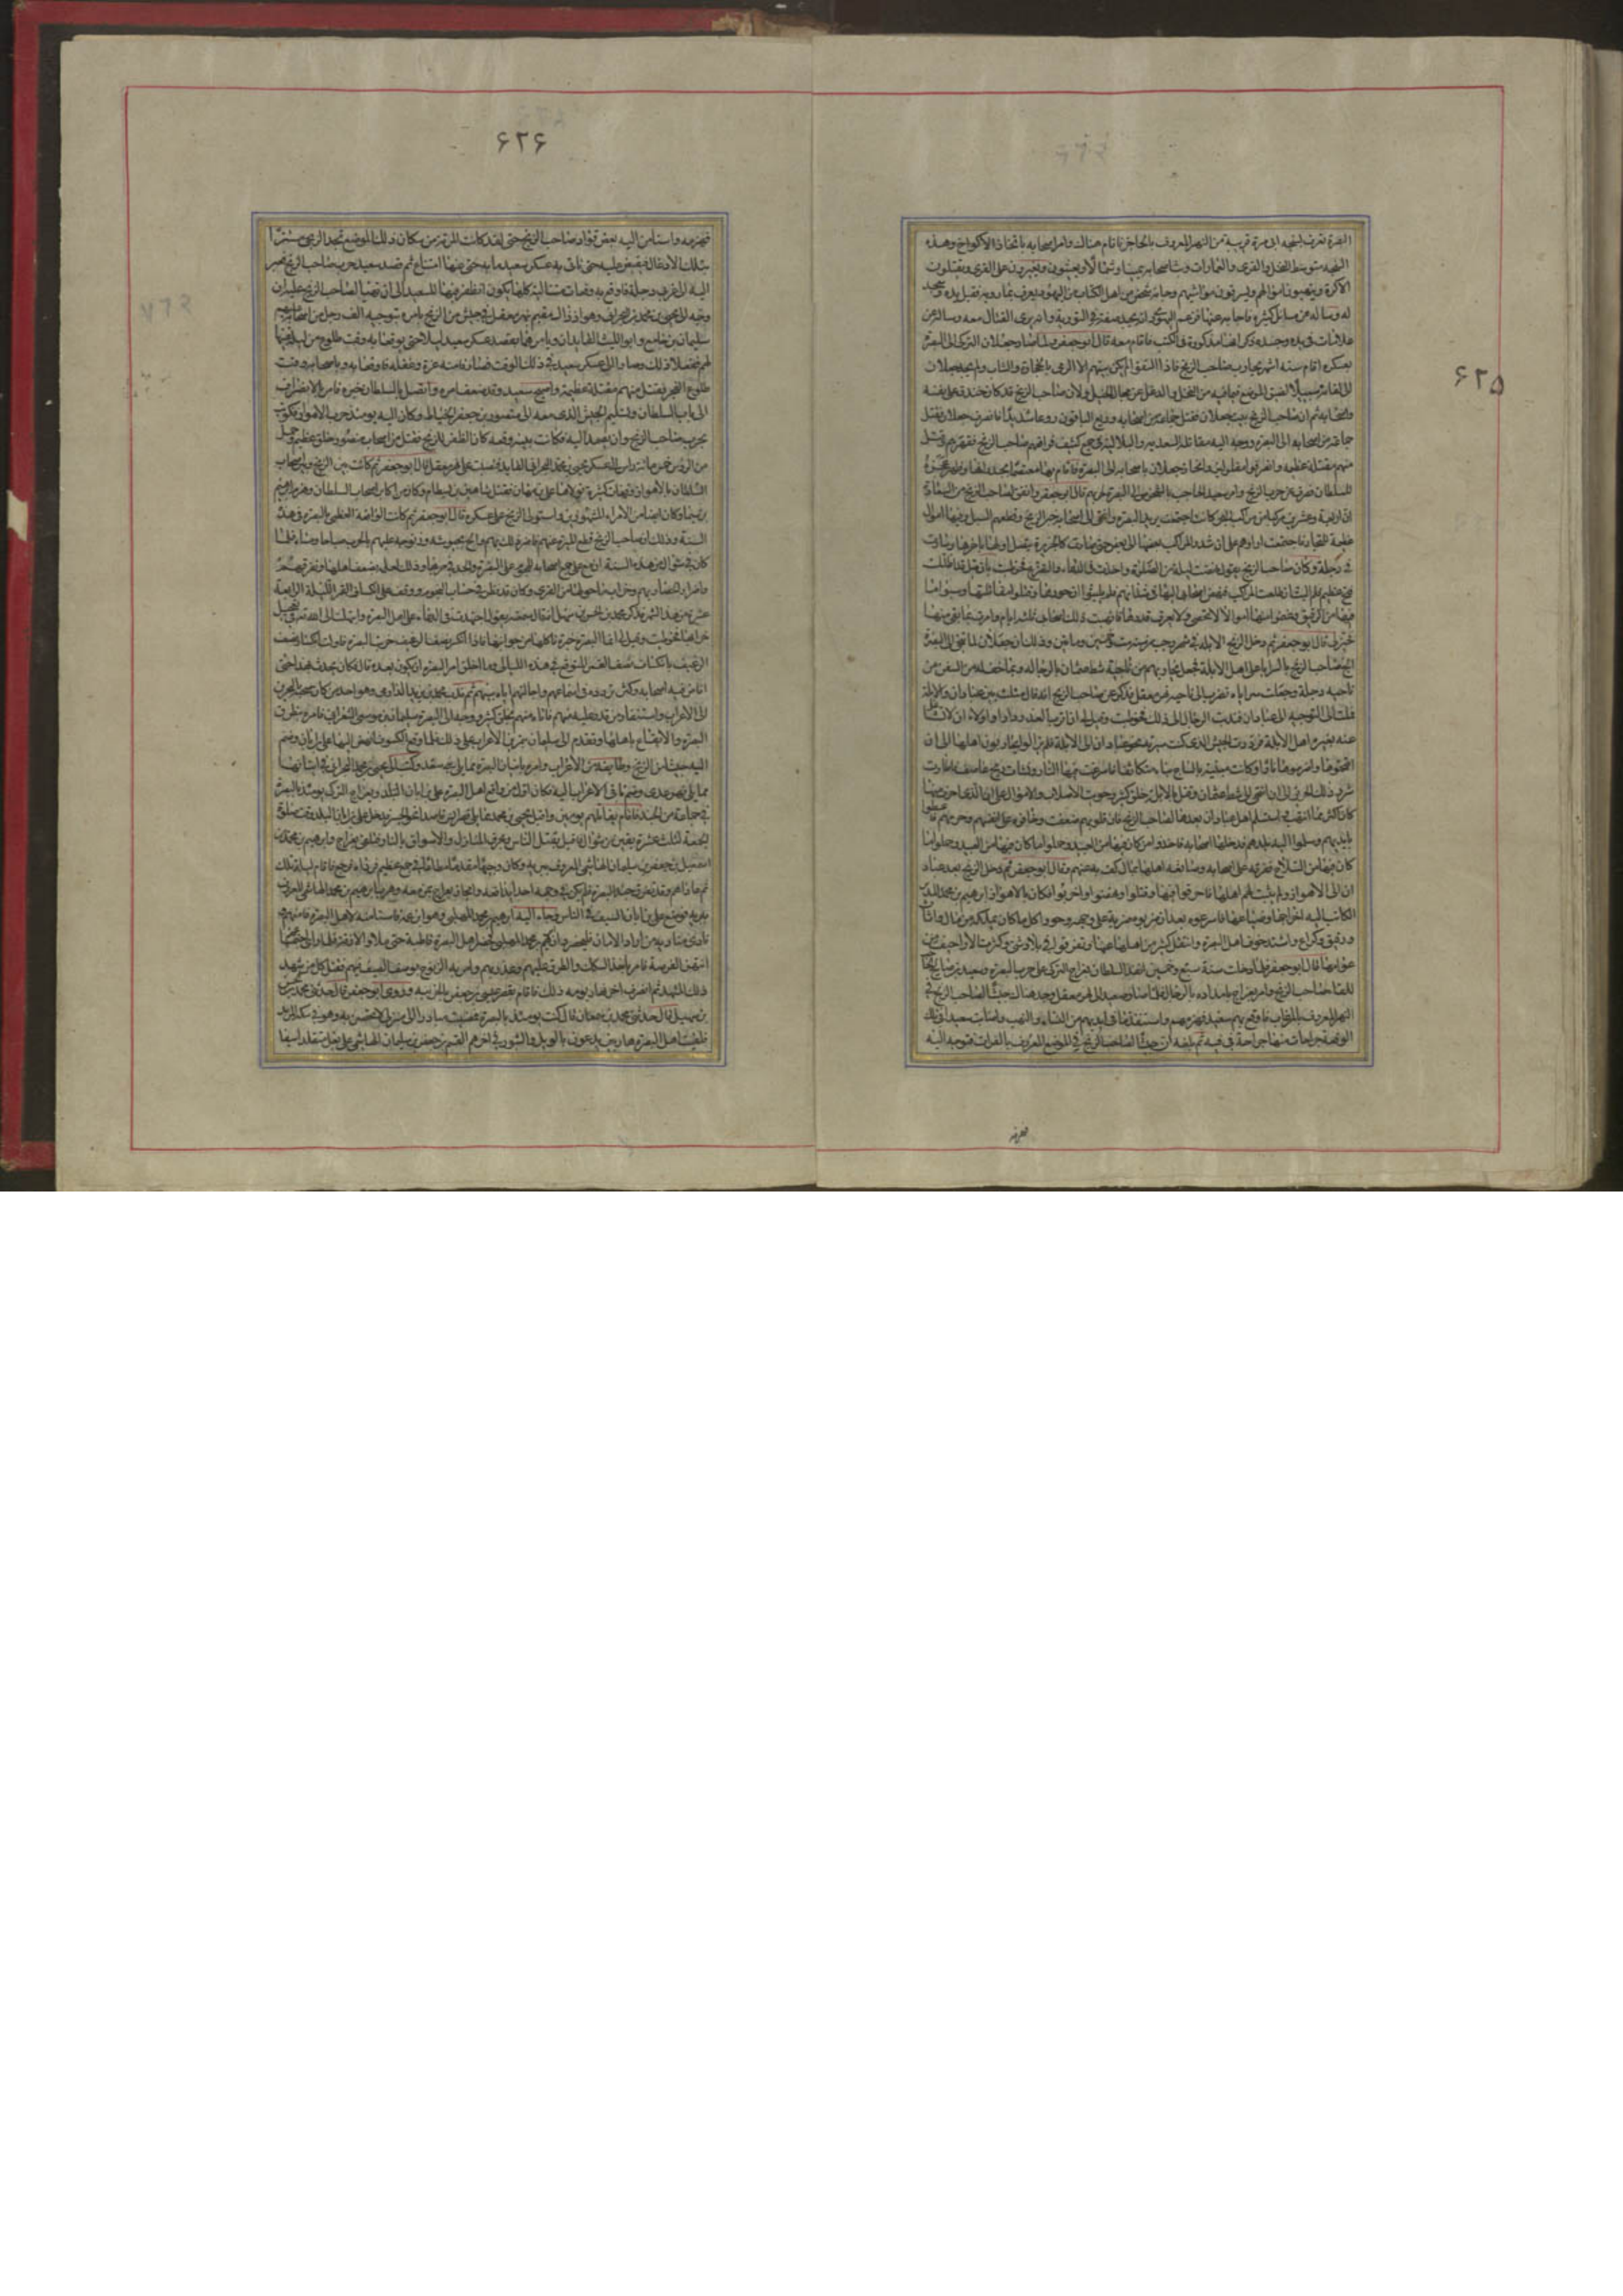 ۶۲۵
البصرة تعرف بسبخة ابى قرة قريبة من النهر المعروف بالحاجر فاقام هناك وامر اصحابه باتخاذ الاكواخ وهذه
السبخة متوسطة النخل والقرى والعمارات وبث اصحابه يمينا وشمالا يعيثون ويغيرون على القرى ويقتلون
الاكرة وينهبون اموالهم ويسرقون مواشيهم وجاءه شخص من اهل الكتاب من اليهود يعرف بمارويه فقبل يده وسجد
له وساله عن مسائل كثيرة فاجابه عنها فزعم اليهودى انه يجد صفته فى التورية وانه يرى القتال معه وساله عن
علامات فى يده وجسده ذكر انها مذكورة فى الكتب فاقام معه قال ابوجعفر ولما صار جعلان التركى الى البصرة
بعسكره اقام ستة اشهر يحارب صاحب الزنج فاذا التقوا لم يكن بينهم الا الرمى بالحجارة والنشاب ولم يجد جعلان
الى لقائه سبيلا لضيق الموضع بما فيه من النخل والدغل عن مجال الخيل ولان صاحب الزنج قد كان خندق على نفسه
واصحابه ثم ان صاحب الزنج بيت جعلان فقتل جماعة من اصحابه وروع الباقون روعا شديدا فانصرف جعلان
جماعة من اصحابه الى البصرة ووجه اليه مقاتلة السعدية والبلالية فى جمع كثيف فواقعهم صاحب الزنج فقهرهم وقتل
منهم مقتلة عظيمة وانصرفوا مفلولين وانحاز جعلان باصحابه الى البصرة فاقام بها معتصما بجدرانها وظهر عجزه
للسلطان فصرفه عن حرب الزنج وامر سعيد الحاجب بالشخوص الى البصرة لحربهم قال ابوجعفر واتفق لصاحب الزنج من السعادة
ان اربعة وعشرين مركبا من مراكب البحر كانت اجتمعت تريد البصرة وانتهى الى اصحابها خبر الزنج وقطعهم السبل وفيها اموال
عظيمة للتجار فاجتمعت اراؤهم على ان شدوا المراكب بعضها الى بعض حتى صارت كالجزيرة يتصل اولها باخرها وسارت
فى دجلة وكان صاحب الزنج يقول نهضت ليلة من الصلوة واخذت فى الدعاء والتضرع فخوطبت بان قيل قد اظلك
فتح عظيم فلم البث ان طلعت المراكب فنهض اصحابى اليها فى شذايهم فلم يلبثوا ان حووها وقتلوا مقاتلتها وسبوا ما
فيها من الرقيق وغنموا منها اموالا لا تحصى ولا يعرف قدرها فانهبت ذلك اصحابى ثلثة ايام وامرت بما بقى منها
فحيز لى قال ابوجعفر ثم دخل الزنج الابلة فى شهر رجب من سنة ست وخمسين ومائتين وذلك ان جعلان لما تنحى الى البصرة
الح صاحب الزنج بالسرايا على اهل الابلة فجعل يحاربهم من ناحية شط عثمان بالرجالة وبما خف له من السفن من
ناحية دجلة وجعلت سراياه تضرب الى ناحية نهر معقل فذكر عن صاحب الزنج انه قال ميلت بين عبادان والابلة
فملت الى التوجه الى عبادان فندبت الرجال الى ذلك فخوطبت وقيل لى ان اقرب العدو دارا واولاه ان لا تتشاغل
عنه بغيره اهل الابلة فرددت الجيش الذى كنت سيرته نحو عبادان الى الابلة فلم يزالوا يحاربون اهلها الى ان
اقتحموها واضرموها نارا وكانت مبنية بالساج بناء متكاثفا فاسرعت فيها النار ونشات ريح عاصف فاطارت
شرر ذلك الحريق الى ان انتهى الى شط عثمان وقتل بالابلة خلق كثير وحويت الاسلاب والاموال على ان الذى احرق منها
كان اكثر مما انتهب فاستسلم اهل عبادان بعدها لصاحب الزنج فان قلوبهم ضعفت وخافوه على انفسهم وحرمهم فاعطوا
بايديهم وسلموا اليه بلدهم فدخلها اصحابه فاخذوا من كان فيها من العبيد وحملوا ما كان فيها
كان فيها من السلاح ففرقه على اصحابه وصانعه اهلها بمال كف به عنهم وقال ابوجعفر ثم دخل الزنج بعد عبادان
الى الاهواز ولم يثبت لهم اهلها فاحرقوا ما فيها وقتلوا ونهبوا واخربوا وكان بالاهواز ابرهيم بن محمد المدبر
الكاتب اليه خراجها وضياعها فاسروه بعد ان ضربوه ضربة على وجهه وحووا كل ما كان يملكه من مال واثاث
ورقيق وكراع واشتد خوف اهل البصرة وانتقل كثير من اهلها عنها وتفرقوا فى بلاد شتى وكثرت الاراجيف من
عوامها قال ابوجعفر فلما دخلت سنة سبع وخمسين انفذ السلطان بغراج التركى على حرب البصرة وسعيد بن صالح الحاجب
للقاء صاحب الزنج وامر بغراج بامداده بالرجال فلما صار سعيد الى نهر معقل وجد هناك جيشا لصاحب الزنج فى
النهر المعروف بالمرغاب فاوقع بهم سعيد فهزمهم واستنقذ ما فى ايديهم من النساء والنهب واصابت سعيدا فى تلك
الوقعة جراحات منها جراحة فى فيه ثم بلغه ان جيشا لصاحب الزنج فى الموضع المعروف بالفرات فتوجه اليه
فهزمه
۶۲۶
فهزمه واستامن اليه بعض قواد صاحب الزنج حتى لقد كانت المرءة من سكان ذلك الموضع تجد الزنجى مستترا
بتلك الادغال فتقبض عليه حتى تاتى به عسكر سعيد ما به حتى عنها امتناع ثم قصد سعيد حرب صاحب الزنج فعبر
اليه الى غربى دجلة فاوقع به وقعات متتالية كلها يكون الظفر فيها لسعيد الى ان تهيا لصاحب الزنج عليه ان
وجه الى يحيى بن محمد البحرانى وهو اذ ذاك مقيم بنهر معقل فى جيش من الزنج يامره بتوجيه الف رجل من اصحابه عليهم
سليمان بن جامع وابو الليث القايدان ويامرهما بقصد عسكر سعيد ليلا حتى يوقعا به وقت طلوع
ففعلا ذلك وصارا الى عسكر سعيد فى ذلك الوقت فصادفا منه غرة وغفلة فاوقعا به وباصحابه وقت
طلوع الفجر فقتل منهم مقتلة عظيمة واصبح سعيد وقد ضعف امره واتصل بالسلطان خبره فامره بالانصراف
الى باب السلطان وتسليم الجيش الذى معه الى منصور بن جعفر الخياط وكان اليه يومئذ حرب الاهواز وكوتب
بحرب صاحب الزنج وان يصمد اليه فكانت بينه وقعة كان الظفر للزنج فقتل من اصحاب منصور خلق عظيم وحمل
من الرؤس خمس مائة راس الى عسكر يحيى بن محمد البحرانى القايد فنصبت على نهر معقل قال ابوجعفر ثم كانت بين الزنج وبين اصحاب
السلطان بالاهواز وقعات كثيرة تولاها على بن ابان فقتل شاهين بن بسطام وكان من اكابر اصحاب السلطان وهزم ابرهيم
بن سيما وكان ايضا من الامراء المشهورين واستولى الزنج على عسكره قال ابوجعفر ثم كانت الواقعة العظمى بالبصرة فى هذه
السنة وذلك ان صاحب الزنج قطع الميرة عنهم فاضر ذلك بهم والح بجيوشه وزنوجه عليهم بالحرب صباحا ومساء فلما
كان فى شوال من هذه السنة ازمع على جمع اصحابه للهجوم على البصرة والجد فى خرابها وذلك لعلمه بضعف اهلها وتفرقهم
واضرار الحصار بهم وخراب ما حولها من القرى وكان قد نظر فى حساب النجوم ووقف على انكساف القمر الليلة الرابعة
عشر من هذا الشهر فذكر محمد بن الحسن بن سهل انه قال سمعته يقول اجتهدت فى الدعاء على اهل البصرة وابتهلت الى الله تع فى تعجيل
خرابها فخوطبت وقيل لى انما البصرة خبزة تاكلها من جوانبها فاذا انكسر نصف الرغيف خربت البصرة فاولت انكسار نصف
الرغيف بانكساف نصف القمر المتوقع فى هذه الليالى وما اخلق امر البصرة ان يكون بعده قال فكان يحدث بهذا حتى
افاض فيه اصحابه وكثر تردده فى اسماعهم واجالتهم اياه بينهم ثم ندب محمد بن يزيد الدارمى وهو احد من كان صحبه بالبحرين
الى الاعراب واستنفار من قدر عليه منهم فاتاه منهم بخلق كثير ووجه الى البصرة سليمان بن موسى الشعرانى فامره بتطرق
البصرة والايقاع باهلها وتقدم الى سليمان بتمرين الاعراب على ذلك فلما وقع الكسوف انهض اليها على بن ابان وضم
اليه جيشا من الزنج وطايفة من الاعراب وامره باتيان البصرة مما يلى بنى سعد وكتب الى يحيى بن محمد البحرانى فى اتيانها
مما يلى نهر عدى وضم باقى الاعراب اليه فكان اول من واقع اهل البصرة على بن ابان وبغراج التركى يومئذ بالبصرة
فى جماعة من الجند فاقام يقاتلهم يومين واقبل يحيى بن محمد مما يلى قصر انس قاصدا نحو الجسر فدخل على بن ابان البلد وقت صلوة
الجمعة لثلث عشرة بقين من شوال فاقبل يقتل الناس ويحرق المنازل والاسواق بالنار فتلقاه بغراج وابرهيم بن محمد بن
اسمعيل بن جعفر بن سليمان الهاشمى المعروف ببريه وكان وجيها مقدما مطاعا فى جمع عظيم فرداه فرجع فاقام ليلته تلك
ثم غاداهم وقد تفرق جند البصرة فلم يكن فى وجهه احد يدافعه وانحاز بغراج بمن معه وهرب ابرهيم بن محمد الهاشمى المعروف
ببريه فوضع على بن ابان السيف فى الناس وجاء اليه ابرهيم بن محمد المهلبى وهو ابن عمه فاستامنه لاهل البصرة فامنهم
ونادى مناديه من اراد الامان فليحضر دار ابرهيم بن محمد المهلبى فحضر اهل البصرة قاطبة حتى ملاوا الازقة فلما راى اجتماعهم
انتهز الفرصة فامر باخذ السكك والطرق عليهم وغدر بهم وامر الزنوج بوضع السيف فيهم فقتل كل من شهد
ذلك المشهد ثم انصرف اخر نهار يومه ذلك فاقام بقصر عيسى بن جعفر بالخريبة وروى ابوجعفر قال حدثنى محمد بن الحسن
بن سهل قال حدثنى محمد بن سمعان قال كنت يومئذ بالبصرة فمضيت مبادرا الى منزلى لاتحصن به وهو فى سكة المربد
فلقيت اهل البصرة هاربين يدعون بالويل والثبور وفى اخرهم القسم بن جعفر بن سليمان الهاشمى على بغل متقلدا سيفا